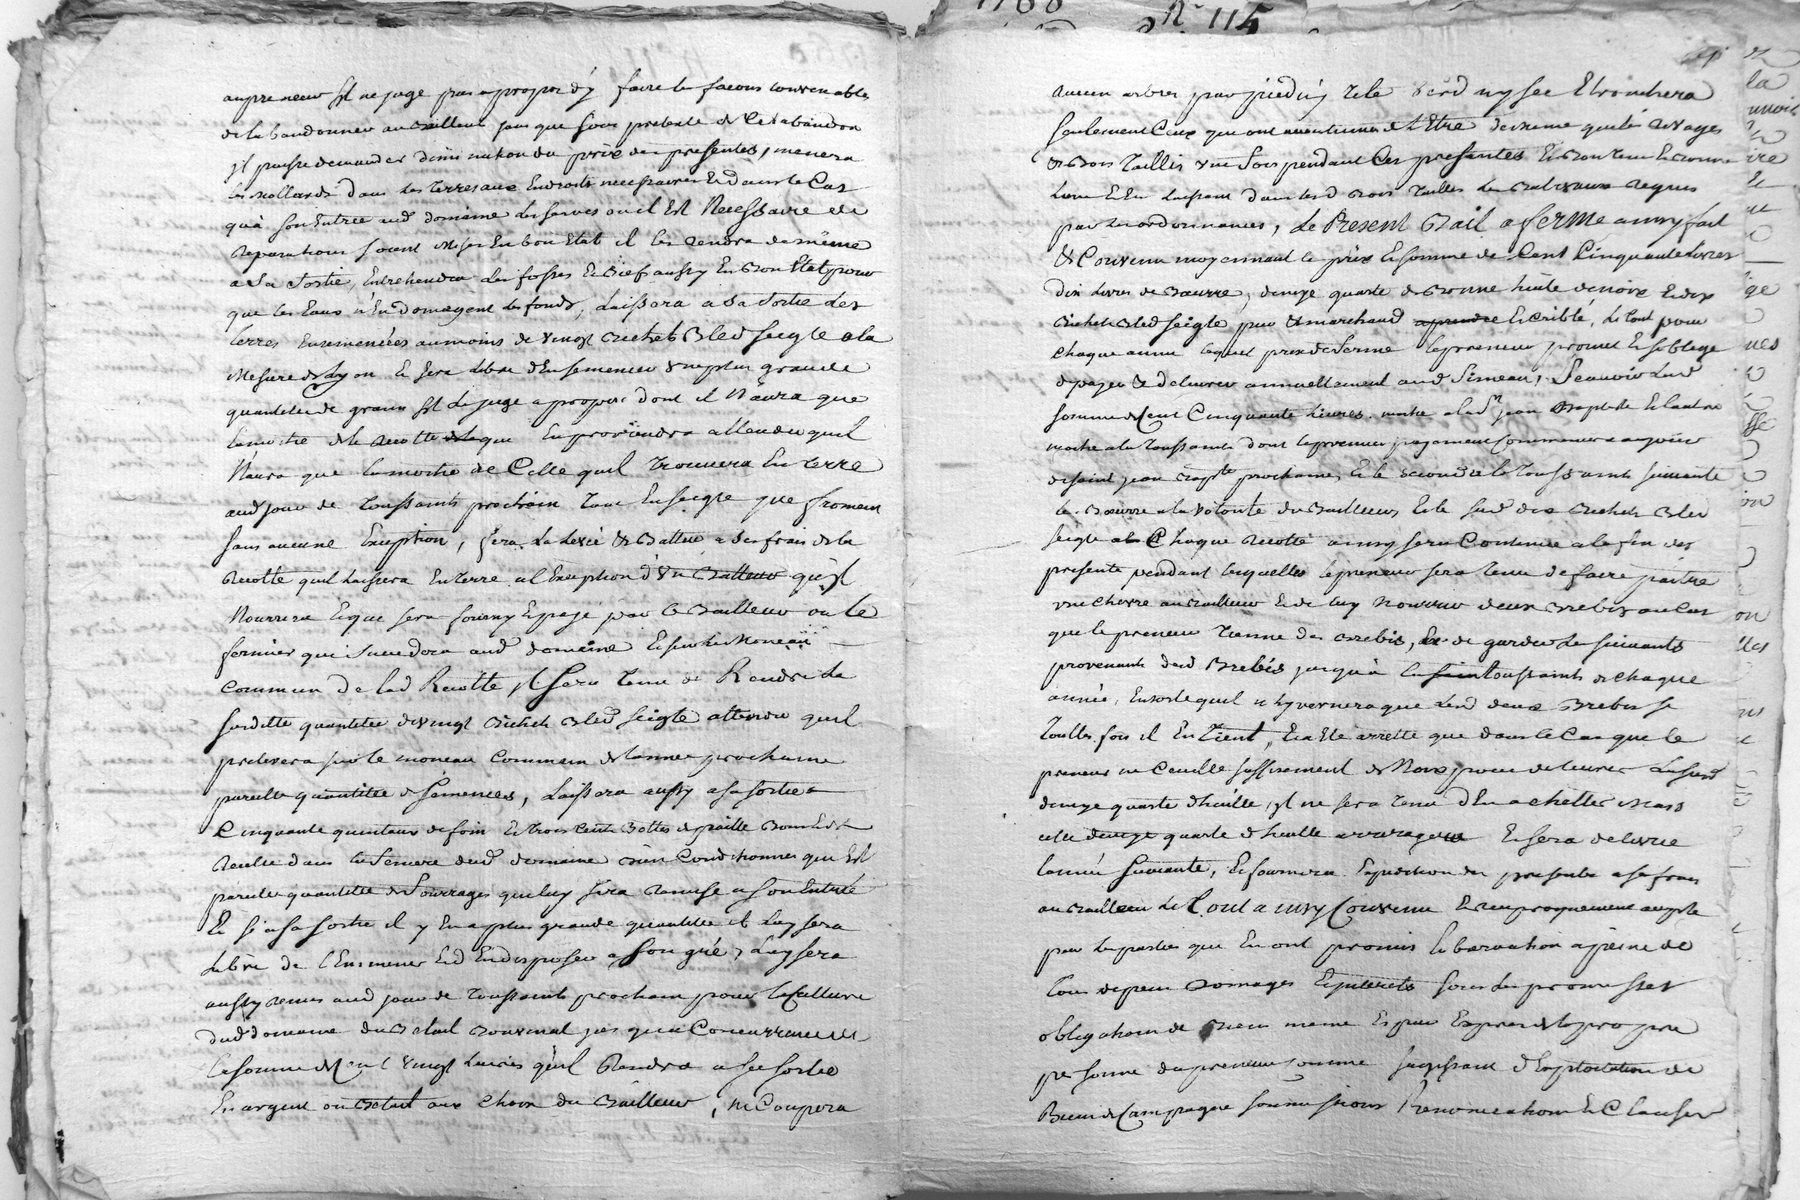 au preneur sil ne juge pas a propos d'y faire les facons convenables
de labandonner au Bailleur sans que sous pretexte de Cet abandon
il puisse demander diminution du prix des presentes, menera
les mollards dans les terres aux Endroits necessaires Et dans le Cas
qu'à son Entrée aud domaine les serves ou il Est Necessaire de
Reparations soient mises En bon Etat il les rendra de même
a Sa sortie, Entretiendra les fosses Et Biefs aussy En Bon Etat pour
que les Eaux n'Endomagent les fonds, Laissera a Sa sortie Les
terres Ensemencées au moins de vingt Bichets Bled seigle a la
Mesure de Lyon Et sera libre d'Ensemencer une plus grande
quantitée de grains sil Le juge a propos dont il N'aura que
la moitié de la recolte que En proviendra attendu quil
N'aura que la moitié de Celle quil trouvera En terre
aud jour de Toussaints prochain tant En seigle que froment
sans aucune Exception, fera La Levée & Battue a ses frais de la
Recolte quil Laissera En terre a l'Exception d'Un Batteur qu'il
Nourrira Et que sera fourny Et payé par le Bailleur ou le
fermier qui succedera aud domaine Et sur le Monceau
Commun De lad Recolte il sera tenu de Rendre La
susditte quantitée de vingt Bichets Bled seigle attendu quil
prelevera sur le monceau Commun de l'année prochaine
pareille quantitée de semences, Laissera aussy a sa sortie
Cinquante quintaux de foin Et trois Cents Bottes de paille Bonne Et
Recolte dans la feniere dud domaine bien Conditionnés qui Est
pareille quantitée de fourrages que luy sera remise a son Entrée
Et si a sa sortie il y En a plus grande quantitée il Luy sera
Libre de l'Emmener Et d'En disposer a son gré, Luy sera
aussy remis aud jour de Toussaints prochain pour la Culture
dud domaine du Betail Bouvinal jusqu'a Concurrance de
la somme de Cent vingt Livres qu'il Rendra a sa sortie
En argent ou Betail aux choix du Bailleur, ne Coupera
Aucun arbres par pied ny tête verd ny sec Et tronchera
seulement Ceux que ont accoutumés de L'Etre de meme que les rivages
& Bois taillis une fois pendant Ces presentes Et Bon tems Et Bonne
Lune Et En Laissant dans lesd Bois taillis Les Baliveaux Requis
par les ordonnances, Le Present Bail a ferme ainsy fait
& Convenu moyennant le prix Et somme de Cent Cinquante Livres
Dix Livres de Bœurre, demye quarte de Bonne huile de noix Et dix
Bichets Bled seigle pur & marchand Et criblé, Le tout pour
Chaque année lequel prix de ferme le preneur promet Et soblige
de payer & delivrer annuellement aud Simean, Scavoir Lad
somme de Cent Cinquante Livres moitié a la St jean Baptiste Et lautre
moitié a la Toussaints dont le premier payement Commencera au jour
de saint jean Bapte prochaine, Et le second a la Toussaints suivante
le Bœurre a la volonté du Bailleur Et le surd dix Bichets Bled
seigle a Chaque recolte ainsy sera Continué a la fin des
presente pendant lesquelles le preneur sera tenu de faire paitre
une chevre au Bailleur Et de luy Nourrir deux Brebis au Cas
que le preneur tienne des Brebis, & de garder Les suivants
provenants desd Brebis jusqu'à la Toussaints de chaque
année, En sorte quil n'hyvernera que Lesd deux Brebis si
toutte fois il En tient, Et a Eté arretté que dans le Cas que le
preneur ne Ceuille suffisament de Noix pour delivrer Lasusd
demye quarte d'huille, il ne sera tenu d'En achetter Mais
lad demye quarte d'huille arreragera Et sera delivrée
lannée Suivante, Et fournira Expedition des presentes a ses frais
au Bailleur Le Tout ainsy Convenu Et reciproquement accepté
par Les parties que En ont promis lobservation a peine de
tous depens Domages Et interets sous Les promesses
obligations de Biens meme Et par Exprès de la propre
personne du preneur comme sagissant d'Exploitation de
Biens de Campagne soumissions Renonciations Et Clauses
1768
No 115